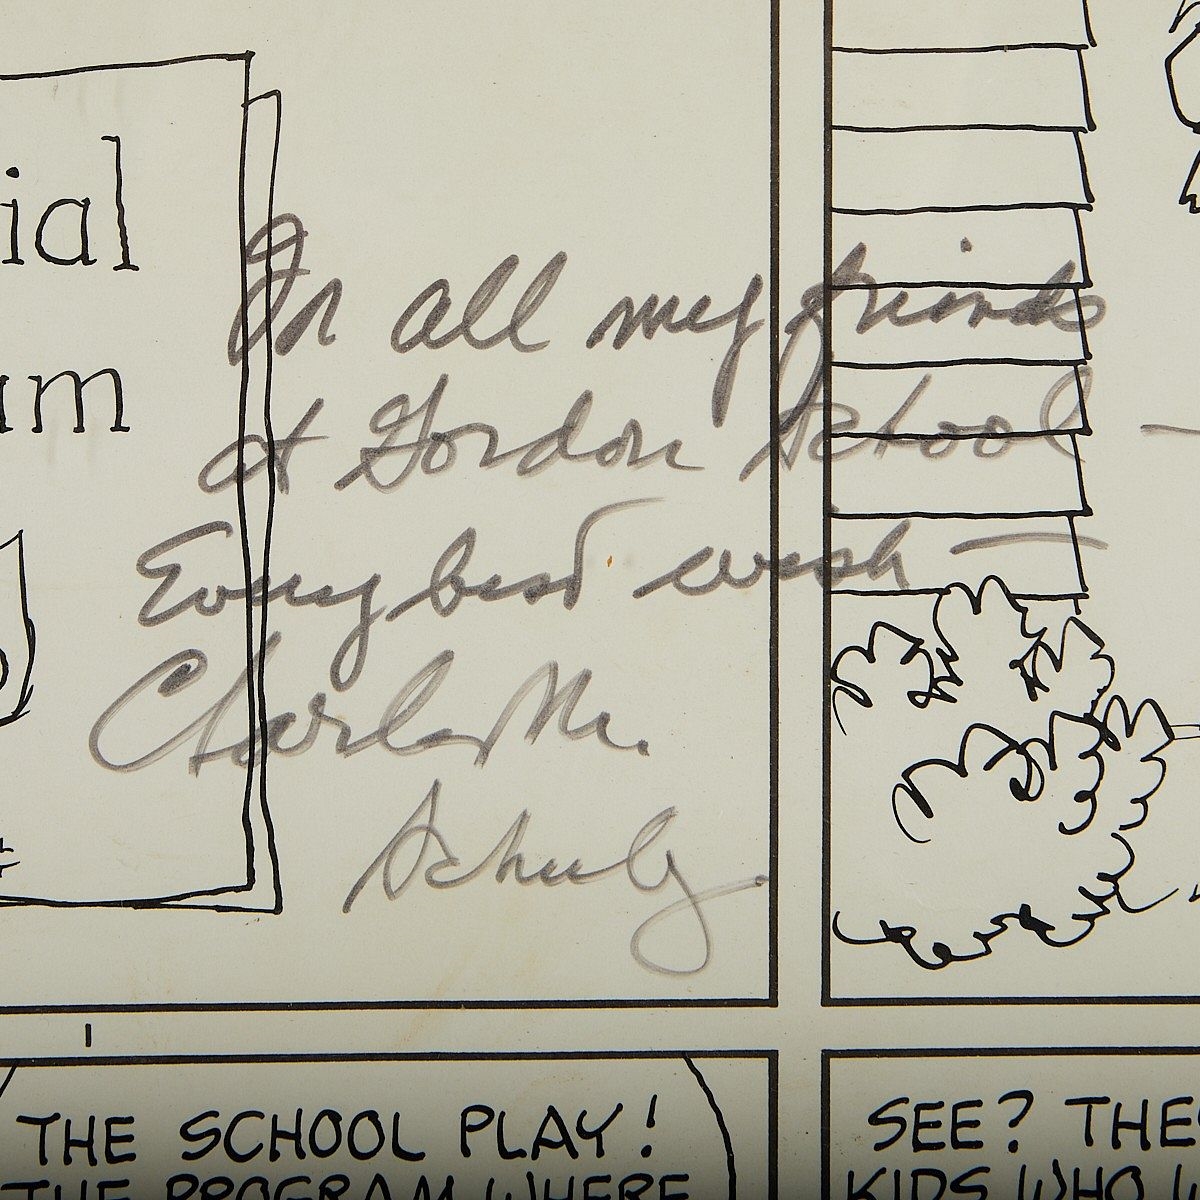 ial
am
For all my friends
at Gordon School —
Every best wish —
Charles M.
Schulz
THE SCHOOL PLAY!
THE PROGRAM WHERE
SEE? THE
KIDS WHO W